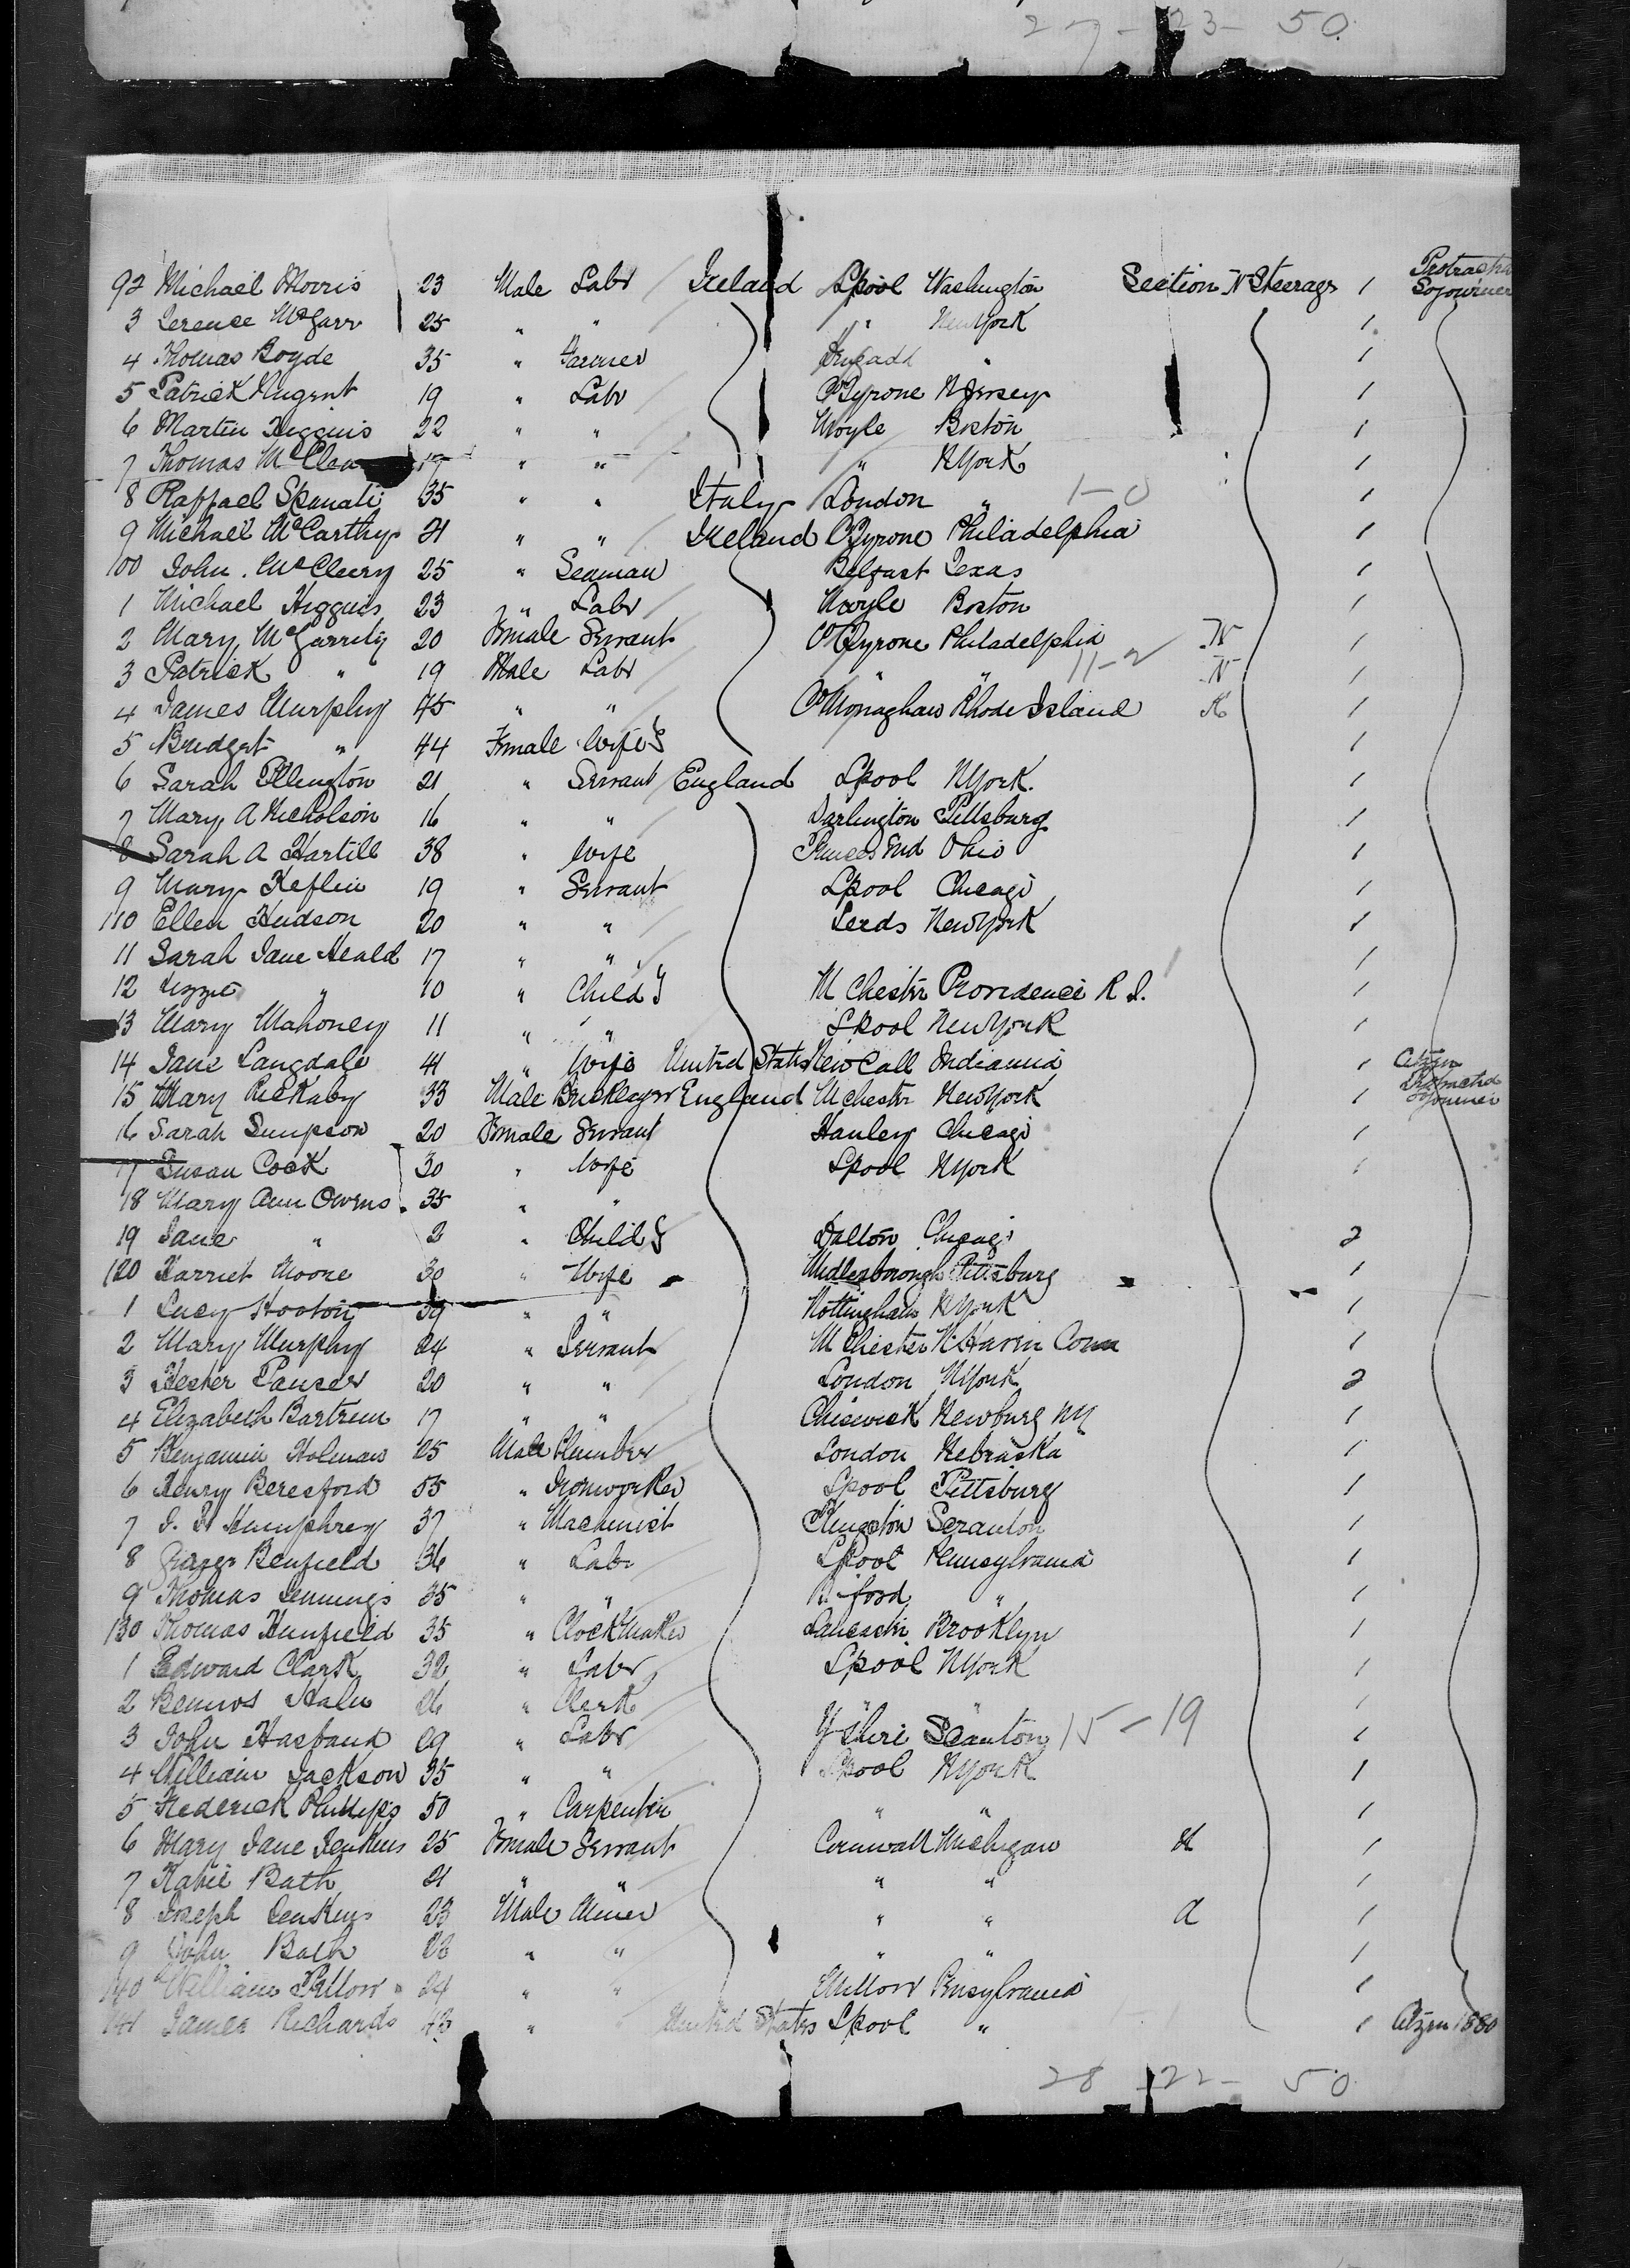 27-23-50
92 Michael Morris 23 Male Labr Ireland Lpool Washington Section N Steerage 1 Protracted Sojourner
3 Terence McGarr 25 " " " New York 1
4 Thomas Boyde 35 " Farmer " 1
5 Patrick Nugent 19 " Labr Co Tyrone N Jersey 1
6 Martin Higgins 22 " " Moyle Boston 1
7 Thomas McClea 17 " " " N York 1
8 Raffael Spanati 35 " " Italy London " 1-0 1
9 Michael McCarthy 21 " " Ireland Co Tyrone Philadelphia 1
100 John McCleery 25 " Seaman Belfast Texas 1
1 Michael Higgins 23 " Labr Moyle Boston 1
2 Mary McGarrity 20 Female Servant Co Tyrone Philadelphia N 1
3 Patrick " 19 Male Labr " " 11-2 N 1
4 James Murphy 45 " " Co Monaghan Rhode Island 1
5 Bridget " 44 Female Wife 1
6 Sarah Ellington 21 " Servant England Lpool N York 1
7 Mary A Nicholson 16 " " Darlington Pittsburg 1
8 Sarah A Hartill 38 " Wife Princes End Ohio 1
9 Mary Keflin 19 " Servant Lpool Chicago 1
110 Ellen Hudson 20 " " Leeds New York 1
11 Sarah Jane Heald 17 " " 1
12 Lizzie " 10 " Child M Chester Providence R I. 1
13 Mary Mahoney 11 " " Lpool New York 1
14 Jane Langdale 41 " Wife United States New Call Indianna 1 Citizen
15 Mary Rickaby 33 Male Bricklayer England Mchester New York 1 Protracted Sojourner
16 Sarah Simpson 20 Female Servant Hanley Chicago 1
17 Susan Cock 30 " Wife Lpool N York 1
18 Mary Ann Owens 35 " "
19 Jane " 2 " Child Dalton Chicago 2
120 Harriet Moore 30 " Wife Midlesborough Pittsburg 1
1 Lucy Hooton 39 " " Nottingham N York 1
2 Mary Murphy 24 " Servant M Chester N Haven Conn 1
3 Hester Panser 20 " " London N York 2
4 Elizabeth Bartrum 17 " " Chiswick Newburg NY 1
5 Benjamin Holman 25 Male Plumber London Nebraska 1
6 Henry Beresford 55 " Ironworker Lpool Pittsburg 1
7 J. H Humphrey 37 " Machinist Scranton 1
8 Benfield 36 " Labr Lpool Pennsylvania 1
9 Thomas Jennings 35 " " " 1
130 Thomas Hunfield 35 " Clockmaker Brooklyn 1
1 Edward Clark 32 " Labr Lpool N York 1
2 Hahn 26 " Clerk " " 1
3 John Hasband 29 " Labr Y Shire Scanton 15-19 1
4 William Jackson 35 " " Lpool N York 1
5 Frederick Phillips 50 " Carpenter " " 1
6 Mary Jane Jenkins 25 Female Servant Cornwall Michigan 1
7 Katie Bath 21 " " " " 1
8 Joseph Jenkins 23 Male Miner " " a 1
9 John Bath 26 " " " " 1
140 William Pellow 24 " " Pensylvania 1
141 James Richards 43 " United States Lpool " 1 Citzen 1880
28-22-50